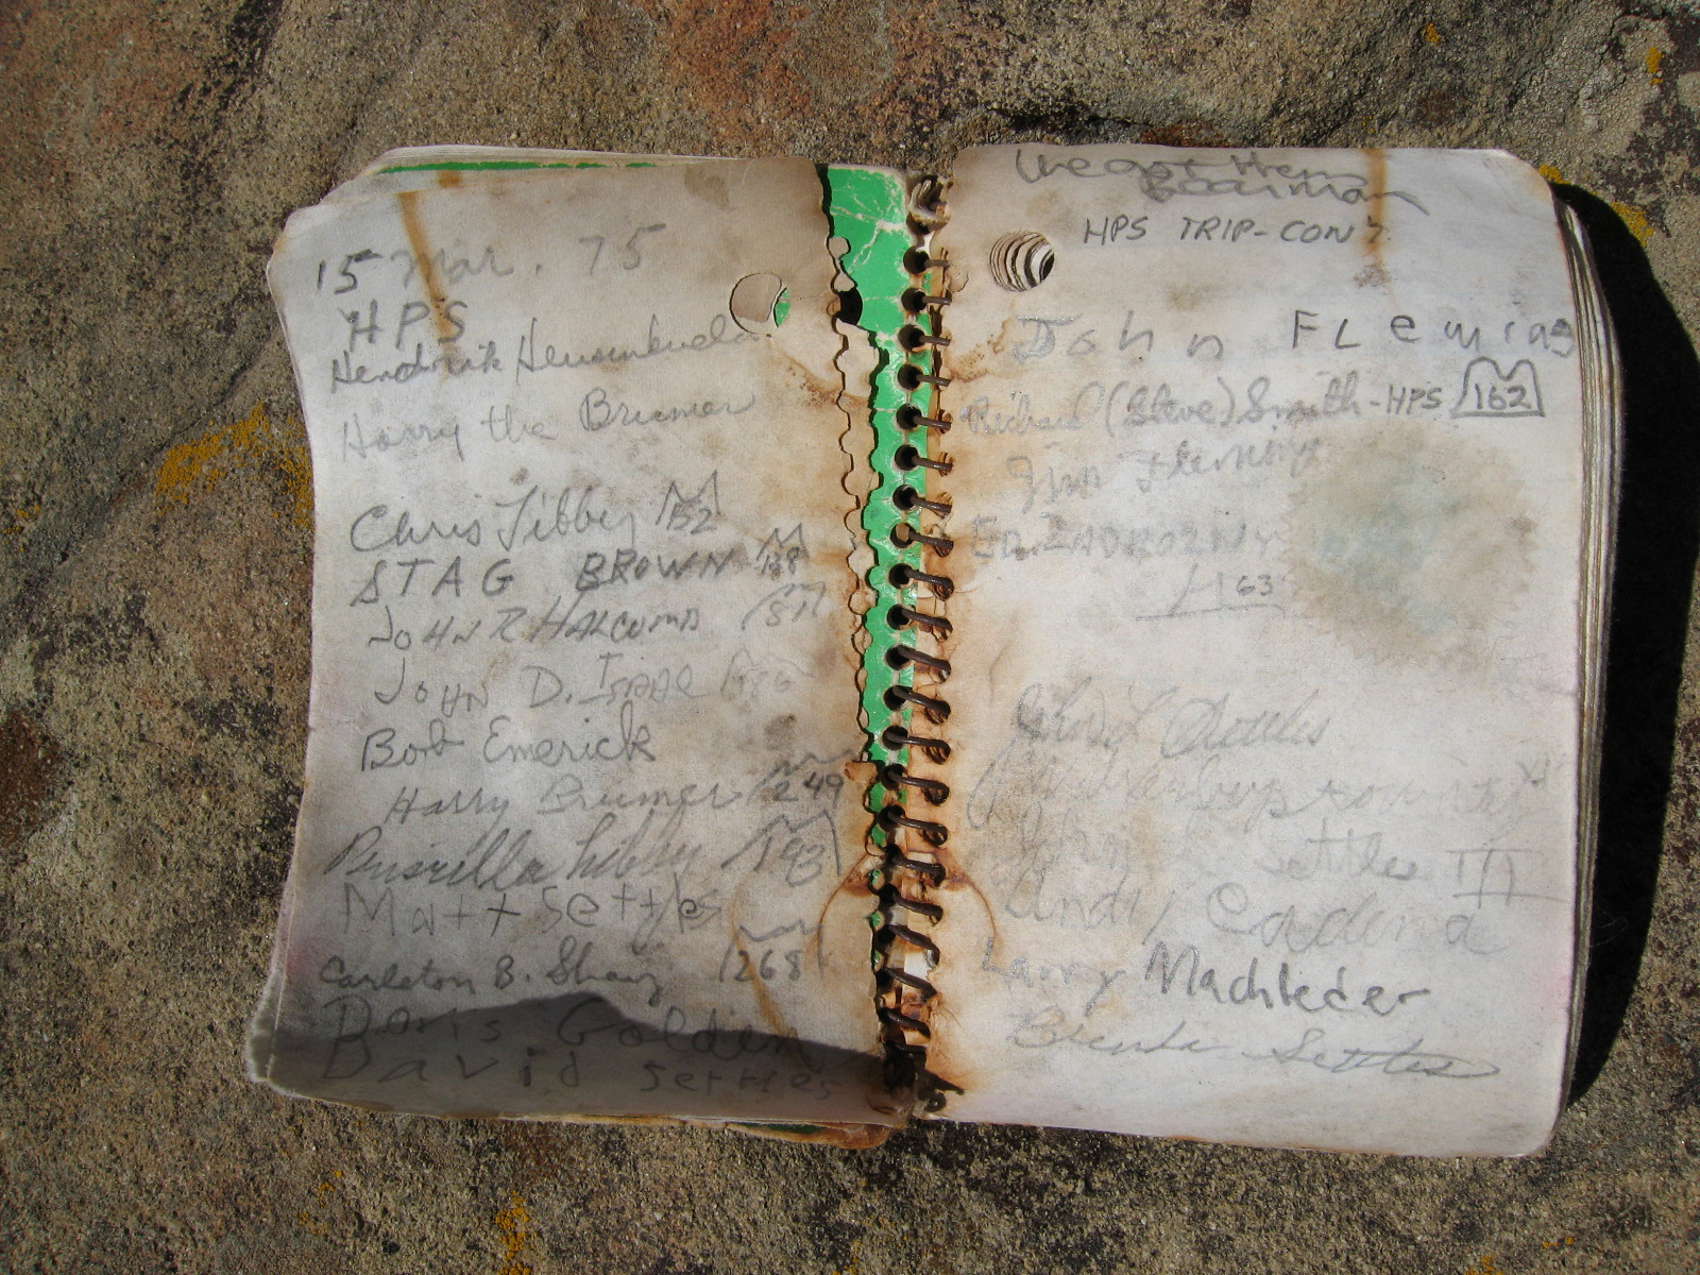 15 Mar. 75
HPS
Hendrik
Harry the Brumer
Chris Libbey 152
STAG BROWN 138
JOHN R HALCOMB 151
JOHN D. ISAAC
Bob Emerick
Harry Brumer 249
Priscilla Libbey 143
Matt Settles
Carleton B. Shay 268
Doris Golden
David Settles
HPS TRIP-CON'T
John FLeming
Richard (Steve) Smith-HPS 162
Jim Fleming
ED. ZADKOZNY
163
Settles
Settles III
Andy Cardena
Larry Machleder
Brenda Settles